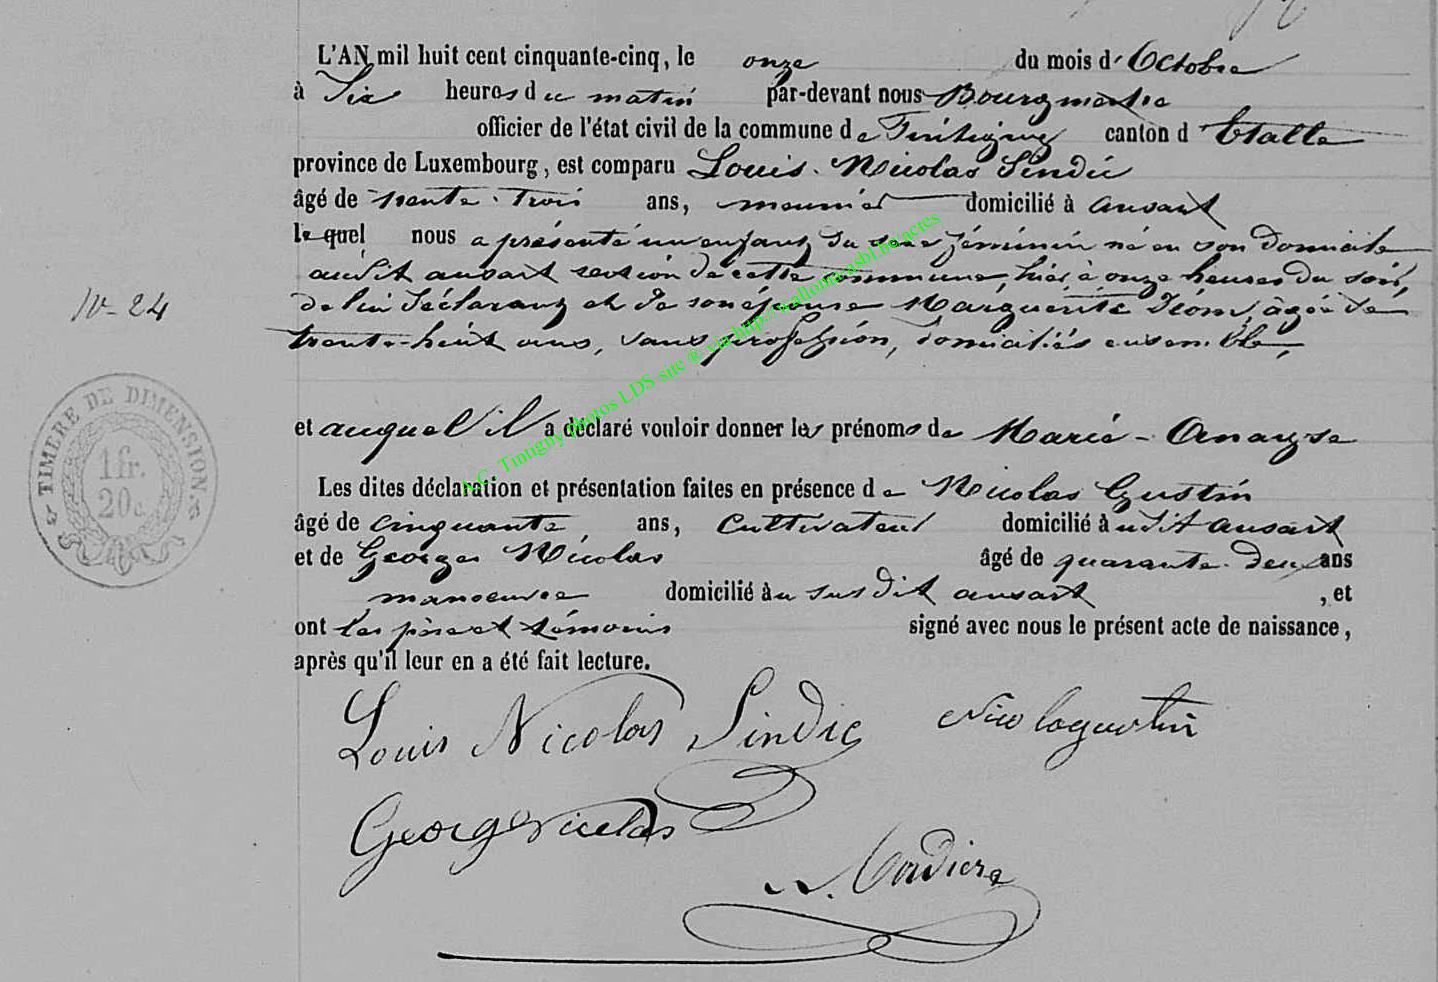 L'AN mil huit cent cinquante-cinq, le onze du mois d'Octobre
à Six heures du matin par-devant nous Bourgmestre
officier de l'état civil de la commune de Tintigny canton d'Etalle
province de Luxembourg, est comparu Louis-Nicolas Sindic
âgé de trente-trois ans, meunier domicilié à ansart
lequel nous a présenté un enfant du sexe féminin né en son domicile
audit ansart section de cette commune, hier à onze heures du soir,
de lui déclarant et de son épouse Marguerite, âgée de
trente-huit ans, sans profession, domiciliés ensemble,
N- 24
et auquel il a déclaré vouloir donner les prénoms de Marie-Anayse
TIMBRE DE DIMENSION.
1 fr.
20 c.
Les dites déclaration et présentation faites en présence de Nicolas Gustin
âgé de cinquante ans, cultivateur domicilié audit ansart
et de Georges Nicolas âgé de quarante-deux ans
manoeuvre domicilié au susdit ansart, et
ont les père et témoins signé avec nous le présent acte de naissance,
après qu'il leur en a été fait lecture.
Louis Nicolas Sindic Nicolas gustin
George nicolas
A.C. Tintigny photos LDS site ® via